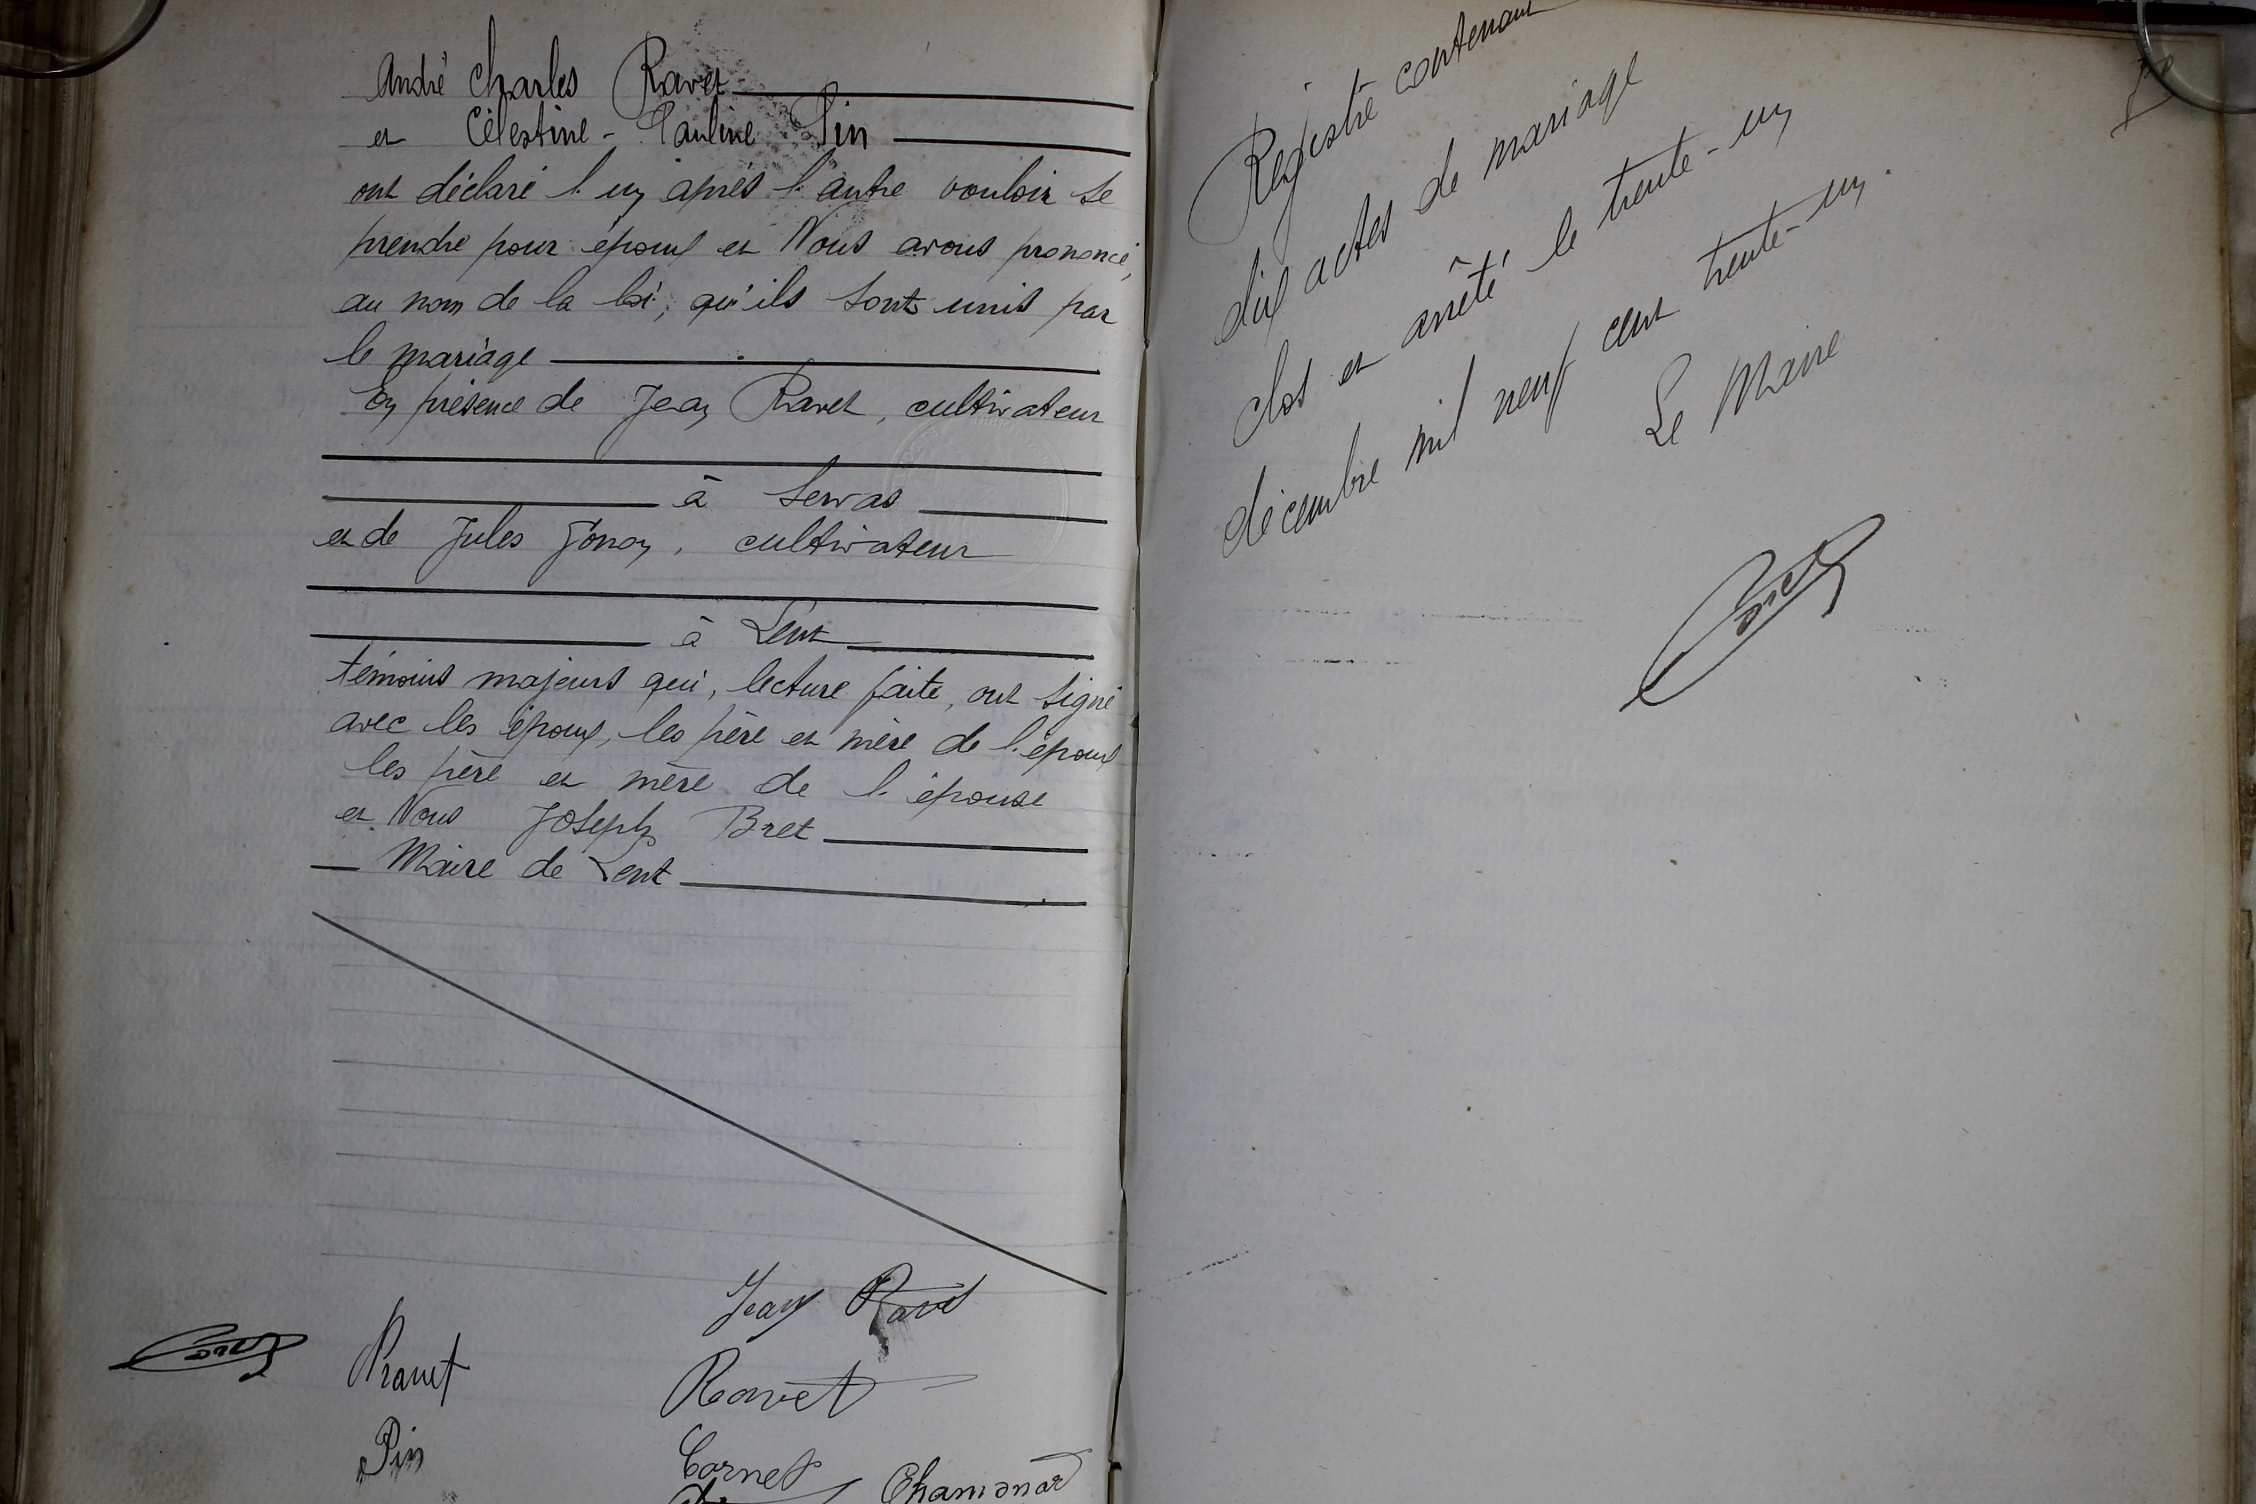 André Charles Ravet
et Célestine-Pauline Pin
ont déclaré l'un après l'autre vouloir se
prendre pour époux et Nous avons prononcé,
au nom de la loi, qu'ils sont unis par
le mariage
En présence de Jean Ravet, cultivateur
à Servas
et de Jules, cultivateur
à Lent
témoins majeurs qui, lecture faite, ont signé
avec les époux, les père et mère de l'époux
les père et mère de l'épouse
et Nous Joseph Bret
Maire de Lent
Jean Ravet
Ravet
Ravet
Pin
Cornet
Chamonard
Registre contenant
dix actes de mariage
clos et arrêté le trente-un
décembre mil neuf cent trente-un.
Le Maire